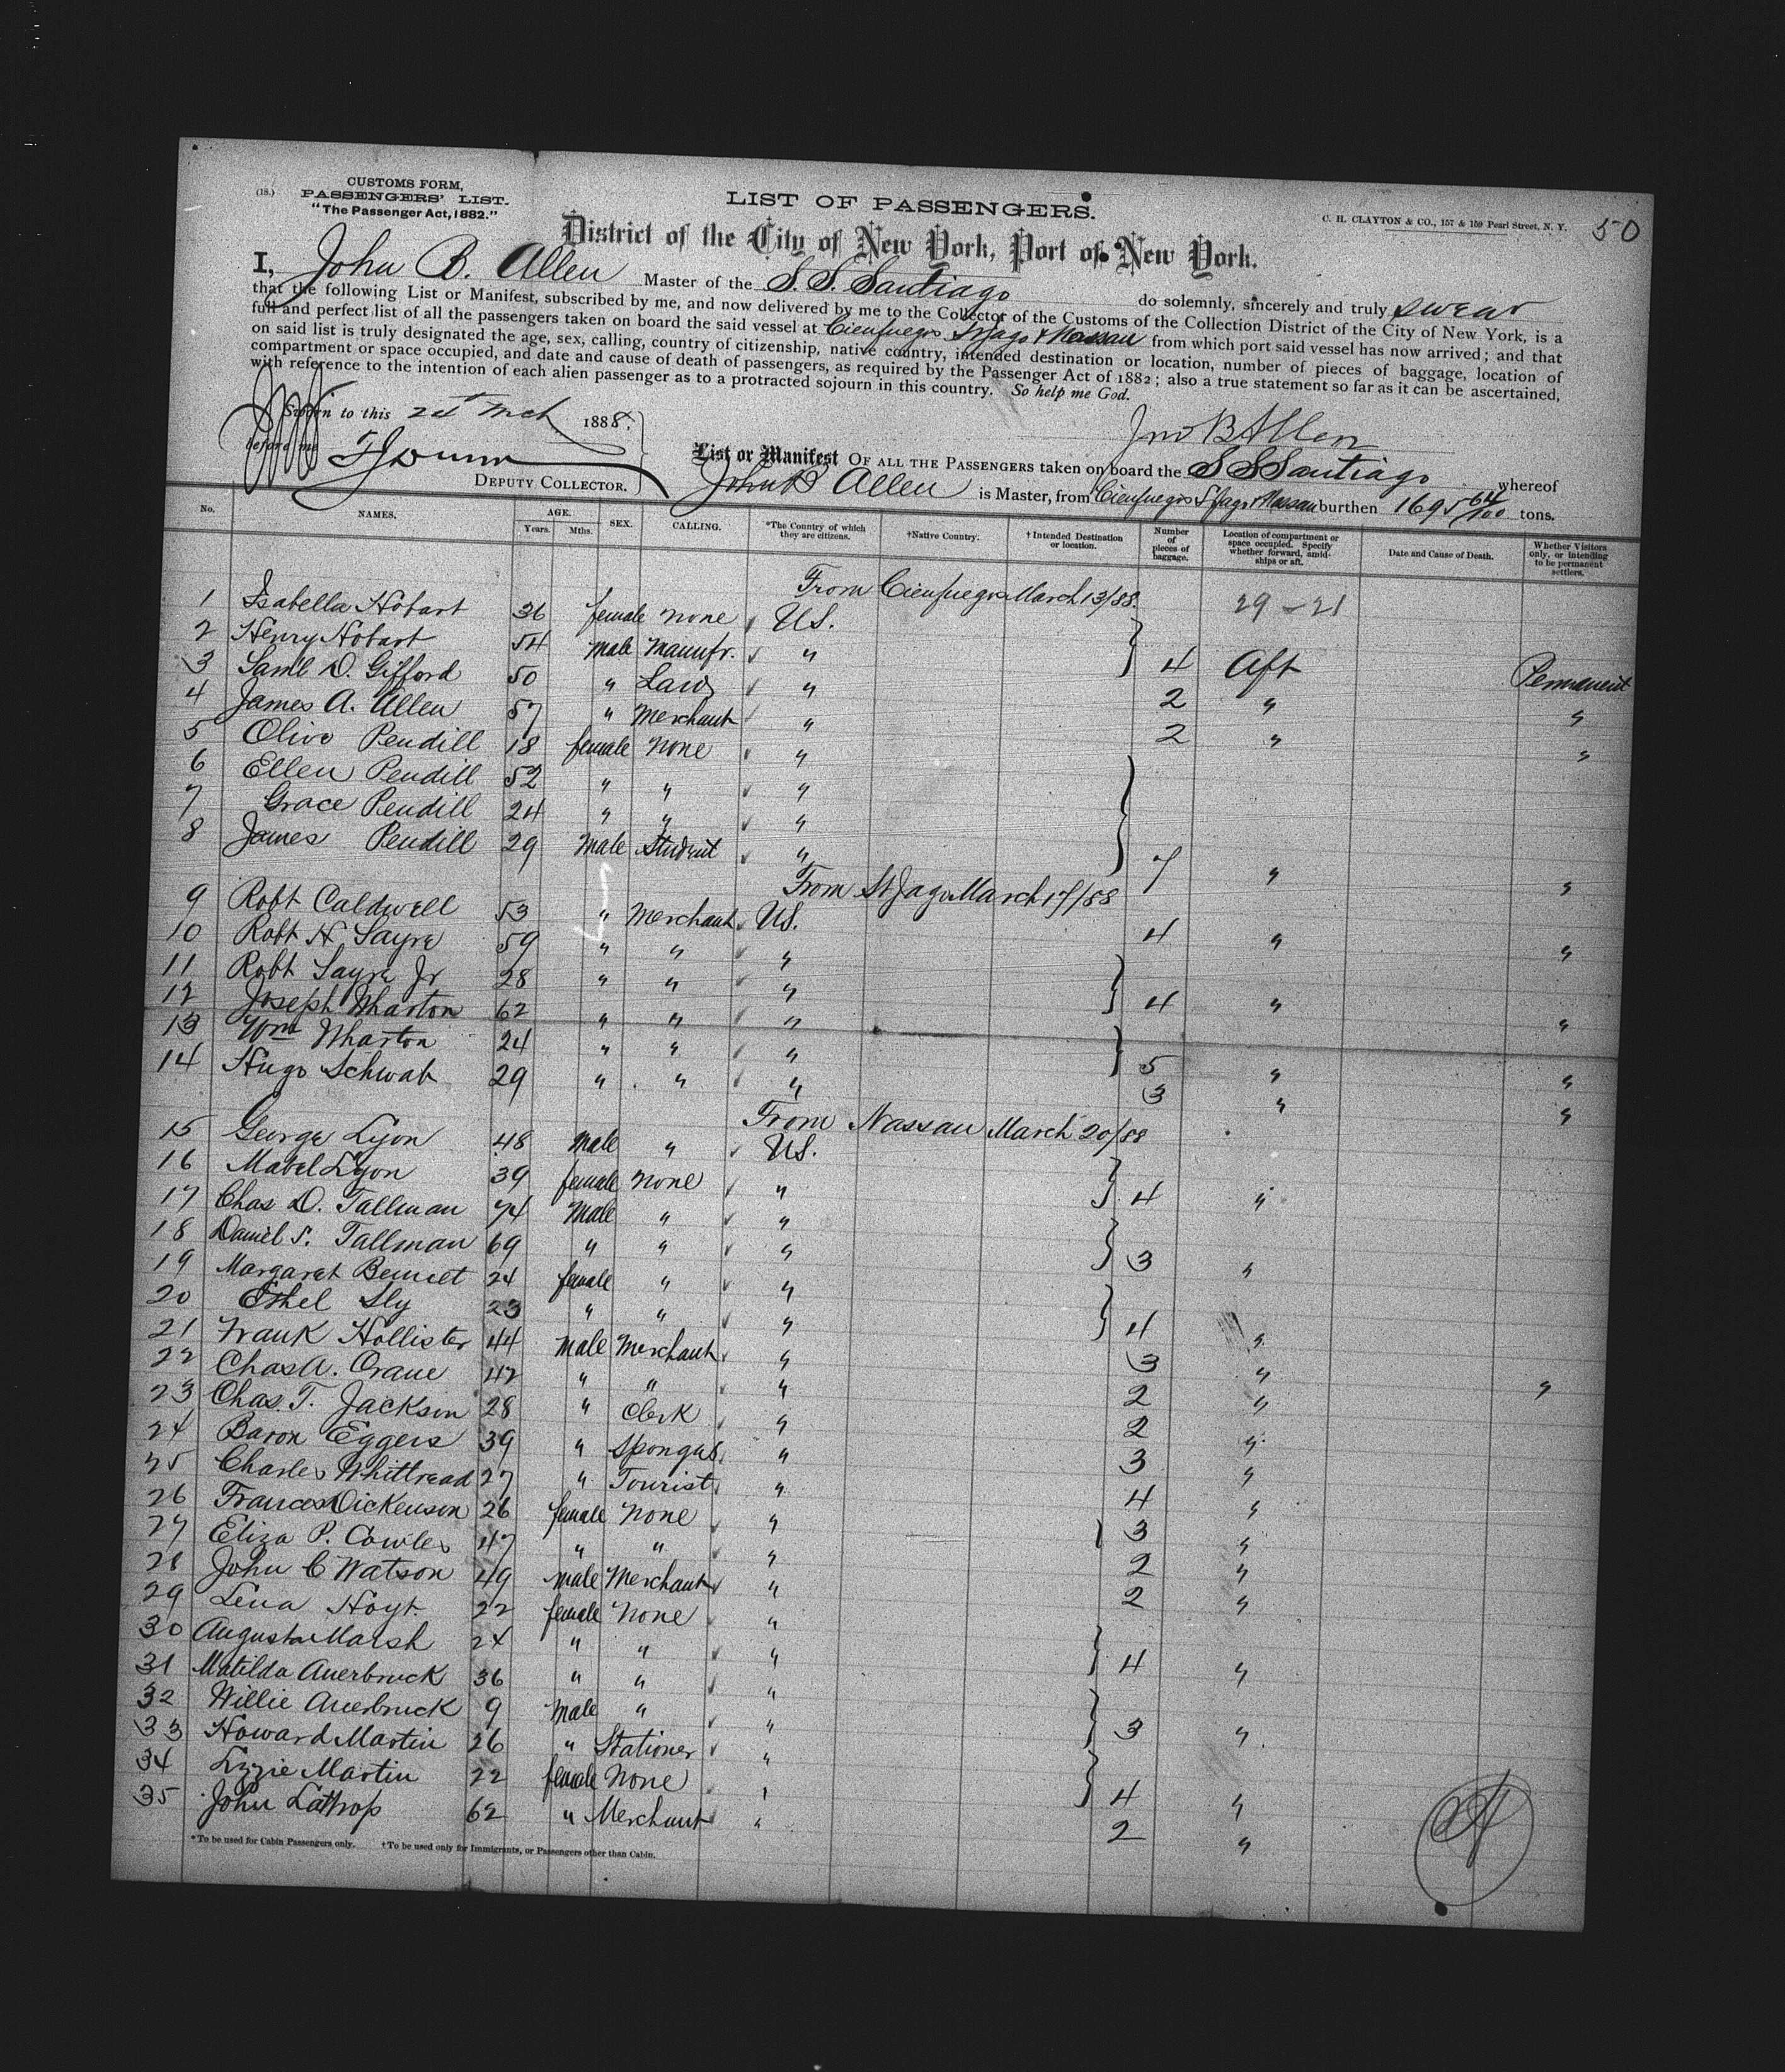 (18.)
CUSTOMS FORM,
PASSENGERS' LIST.
"The Passenger Act, 1882."
LIST OF PASSENGERS.
C. H. CLAYTON & CO., 157 & 159 Pearl Street, N. Y.
50
District of the City of New York, Port of New York.
I, John B. Allen Master of the S. S. Santiago do solemnly, sincerely and truly swear
that the following List or Manifest, subscribed by me, and now delivered by me to the Collector of the Customs of the Collection District of the City of New York, is a
full and perfect list of all the passengers taken on board the said vessel at Cienfuegos St Jago & Nassau from which port said vessel has now arrived; and that
on said list is truly designated the age, sex, calling, country of citizenship, native country, intended destination or location, number of pieces of baggage, location of
compartment or space occupied, and date and cause of death of passengers, as required by the Passenger Act of 1882; also a true statement so far as it can be ascertained,
with reference to the intention of each alien passenger as to a protracted sojourn in this country. So help me God.
Sworn to this 24 Mch 1888.
Jno B Allen
before me
DEPUTY COLLECTOR.
List or Manifest OF ALL THE PASSENGERS taken on board the S S Santiago whereof
John B Allen is Master, from Cienfuegos St Jago & Nassau burthen 1695 64/100 tons.
No. NAMES. AGE. Years. Mths. SEX. CALLING. *The Country of which they are citizens. †Native Country. †Intended Destination or location. Number of pieces of baggage. Location of compartment or space occupied. Specify whether forward, amidships or aft. Date and Cause of Death. Whether Visitors only, or intending to be permanent settlers.
From Cienfuegos March 13/88. 29 - 21
1 Isabella Hobart 36 female none US.
2 Henry Hobart 54 male Manufr. " 4 Aft Permanent
3 Saml D. Gifford 50 " Law " 2 " "
4 James A. Allen 57 " Merchant " 2 " "
5 Olive Pendill 18 female none "
6 Ellen Pendill 52 " " "
7 Grace Pendill 24 " " "
8 James Pendill 29 Male Student " 7 " "
From St Jago March 17/88
9 Robt Caldwell 53 " Merchant US. 4 " "
10 Robt H Sayre 59 " " "
11 Robt Sayre Jr 28 " " " 4 " "
12 Joseph Wharton 62 " " "
13 Wm Wharton 24 " " " 5 " "
14 Hugo Schwab 29 " " " 3 " "
From Nassau March 20/88
15 George Lyon 48 Male " US.
16 Mabel Lyon 39 female none " 4 "
17 Chas D. Tallman 74 Male " "
18 Daniel S. Tallman 69 " " " 3 "
19 Margaret Bennet 24 female " "
20 Ethel Sly 23 " " " 4 "
21 Frank Hollister 44 Male Merchant " 3 "
22 Chas A. Crane 42 " " " 2 " "
23 Chas. T. Jackson 28 " Clerk " 2 "
24 Baron Eggers 39 " " 3 "
25 Charles Whittread 27 " Tourist " 4 "
26 Frances Dickenson 26 female none " 3 "
27 Eliza P. Cowles 47 " " " 2 "
28 John C Watson 49 male Merchant " 2 "
29 Lena Hoyt. 22 female none "
30 Augusta Marsh 24 " " " 4 "
31 Matilda Auerbruck 36 " " "
32 Willie Auerbruck 9 Male " " 3 "
33 Howard Martin 26 " Stationer "
34 Lizzie Martin 22 female none " 4 "
35 John Lathrop 62 " Merchant " 2 "
*To be used for Cabin Passengers only. †To be used only for Immigrants, or Passengers other than Cabin.